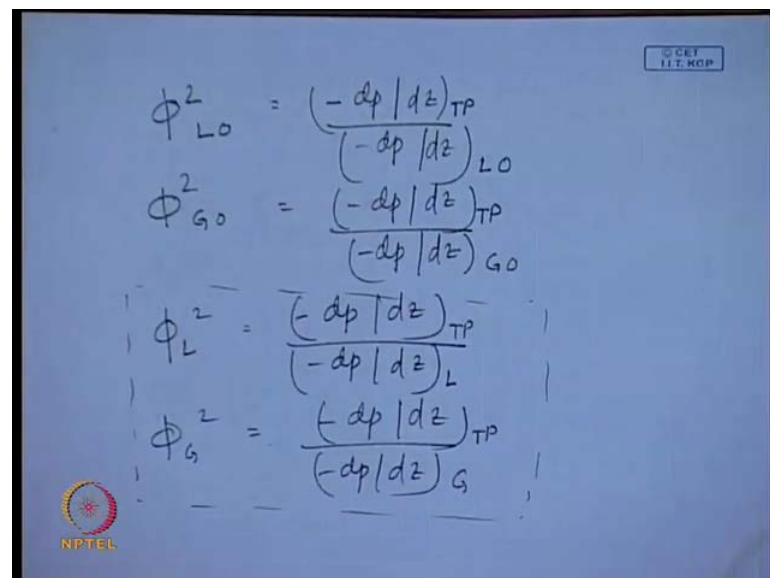 © CET
I.I.T. KGP
Φ²_LO = (-dp|dz)_TP / (-dp|dz)_LO
Φ²_GO = (-dp|dz)_TP / (-dp|dz)_GO
Φ_L² = (-dp|dz)_TP / (-dp|dz)_L
Φ_G² = (-dp|dz)_TP / (-dp|dz)_G
NPTEL